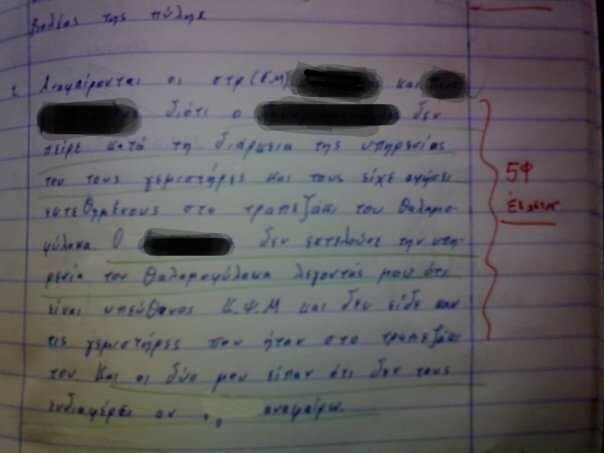 Βολέας της πύλης
1. Αναφέρονται οι στρ (ΕΜ) και
διότι ο δεν
πείρε κατά τη διάρκεια της υπηρεσίας
του τους γεμιστήρες και τους είχε αφήσει
εκτεθημένους στο τραπεζάκι του θαλαμο-
φύλακα. Ο δεν εκτελούσε την υπη-
ρεσία του θαλαμοφύλακα λέγοντάς μου ότι
είναι υπεύθυνος Κ.Ψ.Μ και δεν είδε καν
τις γεμιστήρες που ήταν στο τραπεζάκι
του και οι δύο μου είπαν ότι δεν τους
ενδιαφέρει αν αναφέρω.
5Φ